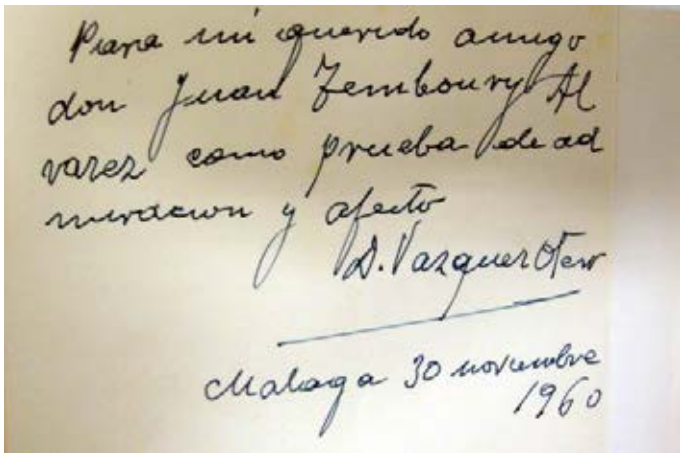 Para mi querido amigo
don Juan Temboury Al
varez como prueba de ad
miracion y afecto
D. Vazquez Otero
Malaga 30 noviembre
1960